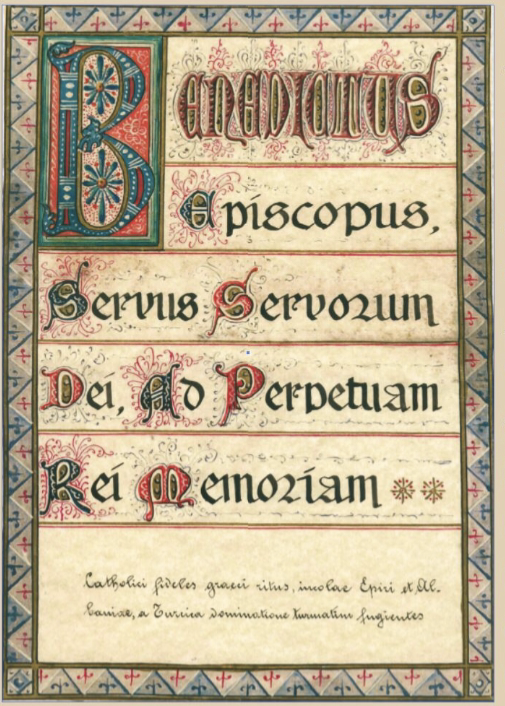 Benedictus
Episcopus,
Servus Servorum
Dei, Ad Perpetuam
Rei Memoriam
Catholici fideles graeci ritus, incolae Epiri et Al-
baniae, a Turcica dominatione turmatim fugientes